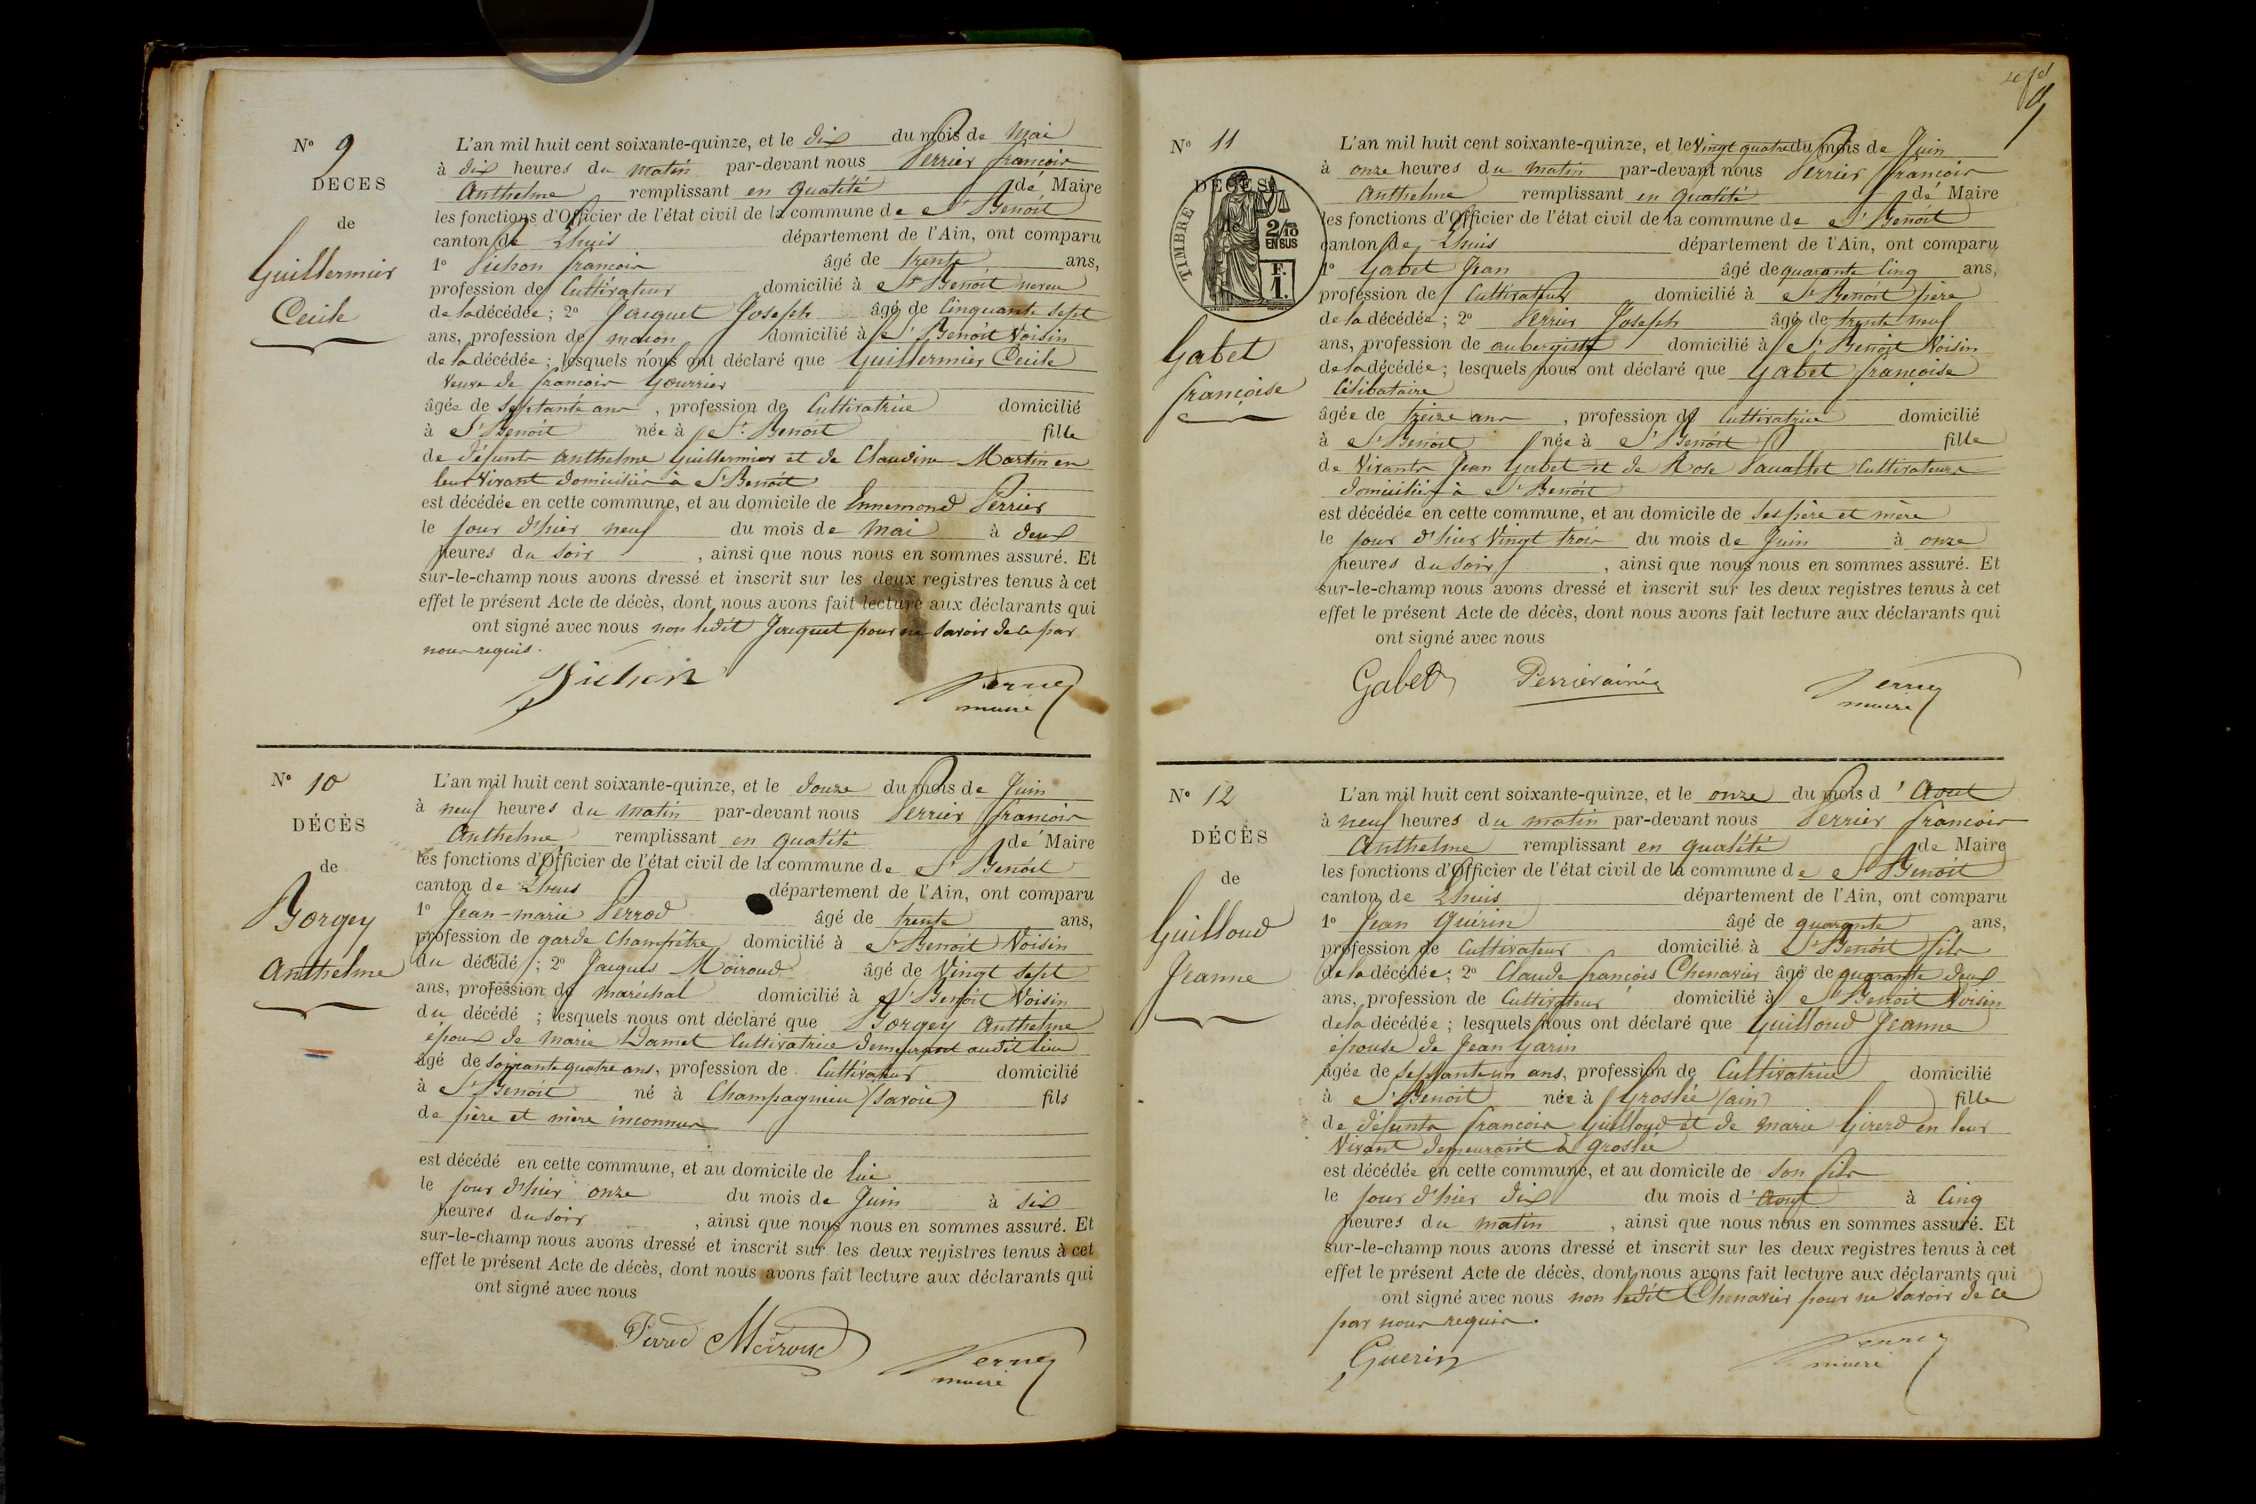 N° 9
DÉCÈS
de
Guillermier
Cecile
L'an mil huit cent soixante-quinze, et le dix du mois de Mai
à dix heures du matin par-devant nous Perrier françois
Anthelme remplissant en qualité de Maire
les fonctions d'Officier de l'état civil de la commune de St Benoit
canton de Lhuis département de l'Ain, ont comparu
1° Pichon françois âgé de trente ans,
profession de Cultivateur domicilié à St Benoit neveu
de la décédée ; 2° Jacquet Joseph âgé de Cinquante sept
ans, profession de maçon domicilié à St Benoit Voisin
de la décédée ; lesquels nous ont déclaré que Guillermier Cecile
Veuve de francois Gourrier
âgée de septante ans , profession de Cultivatrice domicilié
à St Benoit née à St Benoit fille
de défunts Anthelme Guillermier et de Claudine Martin en
leur vivant domiciliés à St Benoit
est décédée en cette commune, et au domicile de Ennemond Perrier
le jour d'hier neuf du mois de Mai à deux
heures du soir , ainsi que nous nous en sommes assuré. Et
sur-le-champ nous avons dressé et inscrit sur les deux registres tenus à cet
effet le présent Acte de décès, dont nous avons fait lecture aux déclarants qui
ont signé avec nous non ledit Jacquet pour ne savoir de ce par
nous requis.
Pichon
maire
N° 10
DÉCÈS
de
Borgey
Anthelme
L'an mil huit cent soixante-quinze, et le douze du mois de Juin
à neuf heures du matin par-devant nous Perrier francois
Anthelme remplissant en qualité de Maire
les fonctions d'Officier de l'état civil de la commune de St Benoit
canton de Lhuis département de l'Ain, ont comparu
1° Jean-marie Perrod âgé de trente ans,
profession de garde Champêtre domicilié à St Benoit Voisin
du décédé ; 2° Jacques Moiroud âgé de Vingt sept
ans, profession de maréchal domicilié à St Benoit Voisin
du décédé ; lesquels nous ont déclaré que Borgey Anthelme
époux de Marie Damet Cultivatrice demeurant audit lieu
âgé de soixante quatre ans, profession de Cultivateur domicilié
à St Benoit né à Champagnieu (Savoie) fils
de père et mère inconnus
est décédé en cette commune, et au domicile de lui
le jour d'hier onze du mois de Juin à six
heures du soir , ainsi que nous nous en sommes assuré. Et
sur-le-champ nous avons dressé et inscrit sur les deux registres tenus à cet
effet le présent Acte de décès, dont nous avons fait lecture aux déclarants qui
ont signé avec nous
Perrod Moiroud
maire
N° 11
DÉCÈS
TIMBRE
2/10
EN SUS
F.
1.
Gabet
françoise
L'an mil huit cent soixante-quinze, et le Vingt quatre du mois de Juin
à onze heures du matin par-devant nous Perrier francois
Anthelme remplissant en qualité de Maire
les fonctions d'Officier de l'état civil de la commune de St Benoit
canton de Lhuis département de l'Ain, ont comparu
1° Gabet Jean âgé de quarante Cinq ans,
profession de Cultivateur domicilié à St Benoit père
de la décédée ; 2° Perrier Joseph âgé de trente neuf
ans, profession de aubergiste domicilié à St Benoit Voisin
de la décédée ; lesquels nous ont déclaré que Gabet françoise
Célibataire
âgée de treize ans , profession de Cultivatrice domicilié
à St Benoit née à St Benoit fille
de Vivants Jean Gabet et de Rose Cultivateurs
domiciliés à St Benoit
est décédée en cette commune, et au domicile de ses père et mère
le jour d'hier Vingt trois du mois de Juin à onze
heures du soir , ainsi que nous nous en sommes assuré. Et
sur-le-champ nous avons dressé et inscrit sur les deux registres tenus à cet
effet le présent Acte de décès, dont nous avons fait lecture aux déclarants qui
ont signé avec nous
Gabet Perrier ainé
maire
N° 12
DÉCÈS
de
Guilloud
Jeanne
L'an mil huit cent soixante-quinze, et le onze du mois d'Aout
à neuf heures du matin par-devant nous Perrier francois
Anthelme remplissant en qualité de Maire
les fonctions d'Officier de l'état civil de la commune de St Benoit
canton de Lhuis département de l'Ain, ont comparu
1° Jean Guérin âgé de quarante ans,
profession de Cultivateur domicilié à St Benoit fils
de la décédée ; 2° Claude françois Chenavier âgé de quarante deux
ans, profession de Cultivateur domicilié à St Benoit Voisin
de la décédée ; lesquels nous ont déclaré que Guilloud Jeanne
épouse de Jean Garin
âgée de septante un ans, profession de Cultivatrice domicilié
à St Benoit née à Groslée (ain) fille
de défunts francois Guilloud et de Marie Girerd en leur
Vivant demeurant à Groslée
est décédée en cette commune, et au domicile de son fils
le jour d'hier dix du mois d'Aout à Cinq
heures du matin , ainsi que nous nous en sommes assuré. Et
sur-le-champ nous avons dressé et inscrit sur les deux registres tenus à cet
effet le présent Acte de décès, dont nous avons fait lecture aux déclarants qui
ont signé avec nous non ledit Chenavier pour ne savoir de ce
par nous requis.
Guerin
maire